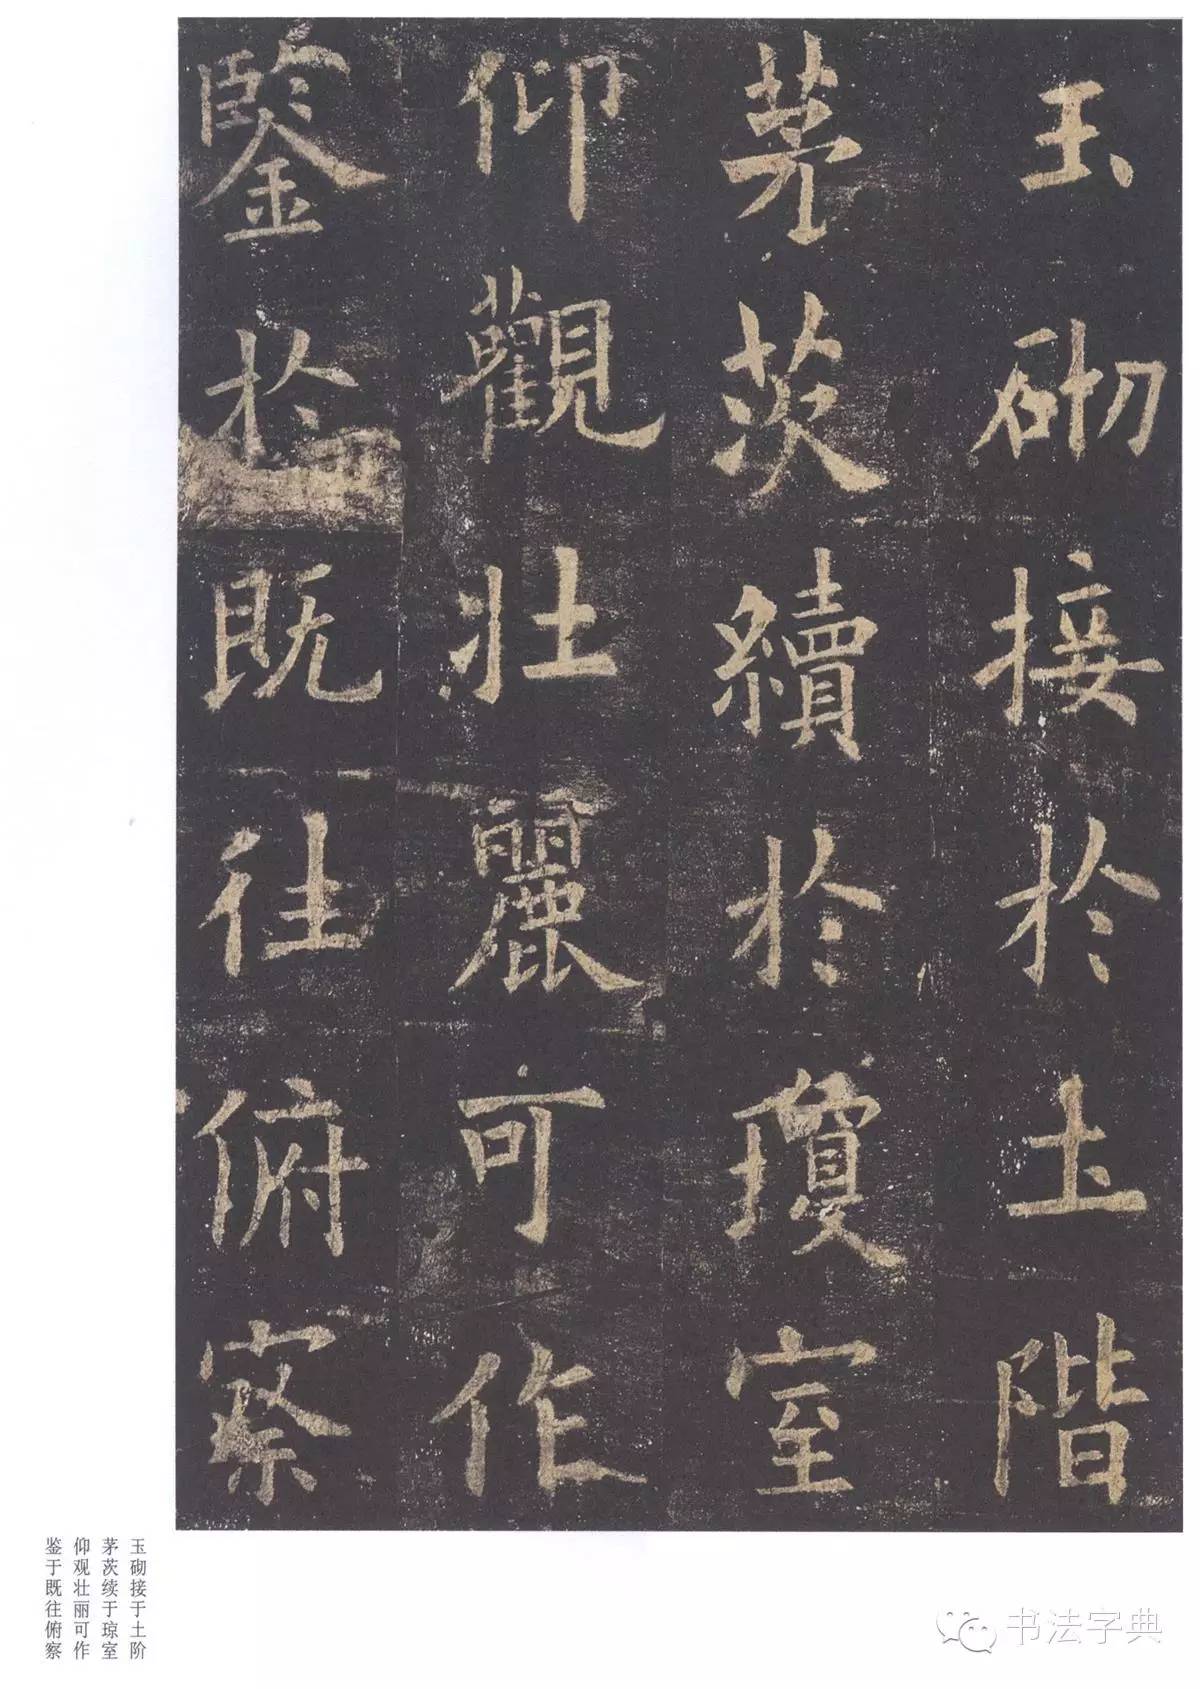 玉砌接於土階
茅茨續於瓊室
仰觀壯麗可作
鑒於既往俯察
玉砌接于土阶
茅茨续于琼室
仰观壮丽可作
鉴于既往俯察
书法字典